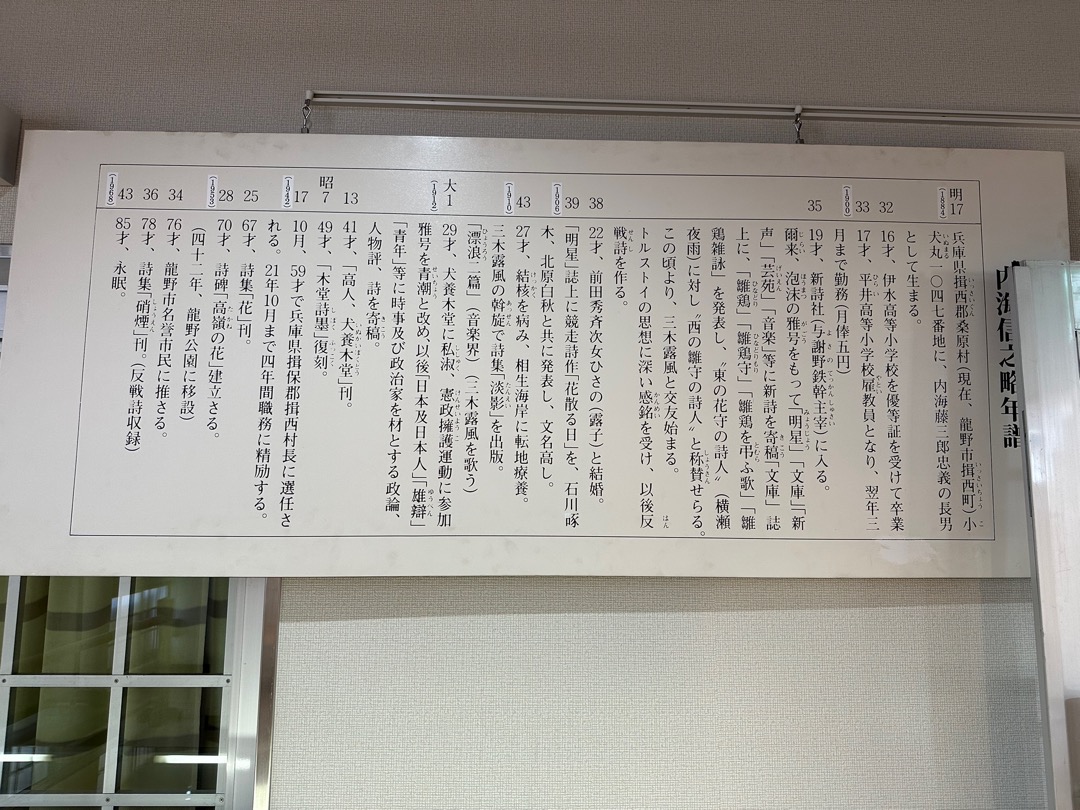 内海信之略年譜
明17
(1884)
兵庫県揖西郡桑原村(現在、龍野市揖西町)小
犬丸一〇四七番地に、内海藤三郎忠義の長男
として生まる。
32
16才、伊水高等小学校を優等証を受けて卒業
33
(1900)
17才、平井高等小学校雇教員となり、翌年三
月まで勤務(月俸五円)
35
19才、新詩社(与謝野鉄幹主宰)に入る。
爾来、泡沫の雅号をもって「明星」「文庫」「新
声」「芸苑」「音楽」等に新詩を寄稿「文庫」誌
上に、「雛鶏」「雛鶏守」「雛鶏を弔ふ歌」「雛
鶏雑詠」を発表し、〝東の花守の詩人〟(横瀬
夜雨)に対し〝西の雛守の詩人〟と称賛せらる。
この頃より、三木露風と交友始まる。
トルストイの思想に深い感銘を受け、以後反
戦詩を作る。
38
22才、前田秀斉次女ひさの(露子)と結婚。
39
(1906)
「明星」誌上に競走詩作「花散る日」を、石川啄
木、北原白秋と共に発表し、文名高し。
43
(1910)
27才、結核を病み、相生海岸に転地療養。
三木露風の斡旋で詩集「淡影」を出版。
「漂浪」一篇(音楽界)(三木露風を歌う)
大1
(1912)
29才、犬養木堂に私淑、憲政擁護運動に参加
雅号を青潮と改め、以後「日本及日本人」「雄辯」
「青年」等に時事及び政治家を材とする政論、
人物評、詩を寄稿。
13
41才、「高人、犬養木堂」刊。
昭7
49才、「木堂詩墨」復刻。
17
(1942)
10月、59才で兵庫県揖保郡揖西村長に選任さ
れる。21年10月まで四年間職務に精励する。
25
67才、詩集「花」刊。
28
(1953)
70才、詩碑「高嶺の花」建立さる。
(四十二年、龍野公園に移設)
34
76才、龍野市名誉市民に推さる。
36
78才、詩集「硝煙」刊。(反戦詩収録)
43
(1968)
85才、永眠。